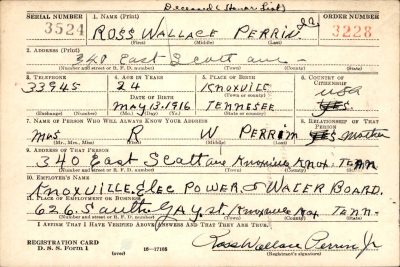 Deceased (Honor List)
SERIAL NUMBER 1. Name (Print) ORDER NUMBER
3524 ROSS WALLACE PERRIN Jr 3228
(First) (Middle) (Last)
2. Address (Print)
340 East Scott ave -
(Number and street or R. F. D. number) (Town) (County) (State)
3. Telephone 4. Age in Years 5. Place of Birth 6. Country of Citizenship
33945 24 Knoxville USA
May 13, 1916 Tennesee Yes
(Exchange) (Number) (Mo.) (Day) (Yr.) (State or country)
7. Name of Person Who Will Always Know Your Address 8. Relationship of That Person
Mrs R W PERRIN Yes Mother
(Mr., Mrs., Miss) (First) (Middle) (Last)
9. Address of That Person
340 East Scott av Knoxville Knox. Tenn
(Number and street or R. F. D. number) (Town) (County) (State)
10. Employer's Name
Knoxville. Elec Power & Water Board.
11. Place of Employment or Business
626. South Gay. St Knoxville Knox. Tenn-
(Number and street or R. F. D. number) (Town) (County) (State)
I Affirm That I Have Verified Above Answers and That They Are True.
Registration Card
D. S. S. Form 1 16-17105 Ross Wallace Perrin Jr
(over) (Registrant's signature)